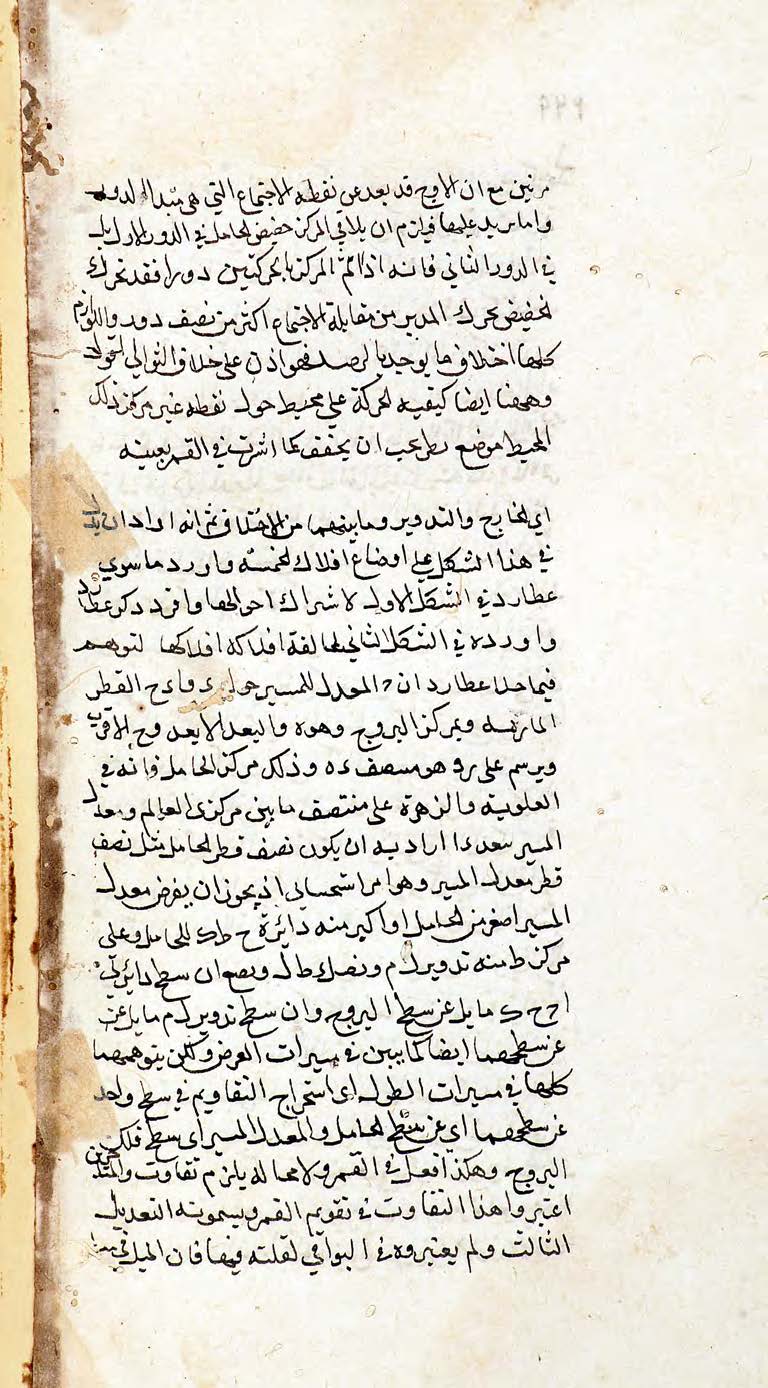 مرتين مع ان الاوج قد بعد عن نقطه الاجتماع التي هي مبدا الدور
واما يزيد عليها فيلزم ان يلاقي المركز حضيض الحامل في الدور الاول بل
في الدور الثاني فانه اذا تم المركز بالحركتين دورا فقد تحرك
الحضيض بحرك المدير من مقابلة الاجتماع اكثر من نصف دور واللوازم
كلها اختلاف ما يوجد بالرصد فهو اذن على خلاف التوالي لتحول
وههنا ايضا كيفيه الحركة على محيط حول نقطه غير مركز ذلك
المحيط موضع نظر يجب ان يحقق كما اشرت في القمر بعينه
اي الخارج والتدوير وما بينهما من الاختلاف ثم انه اراد ان يدل
في هذا الشكل على اوضاع افلاك الخمسه واورد ما سوي
عطارد في الشكل الاول لاشتراك احوالها وافرد ذكر عطارد
واورده في الشكل الثاني لمخالفة افلاكه افلاكها لنتوهم
فيما خلا عطارد ان المعدل للمسير حول القطر
الماربه وبمركز البروج وهو ه والبعد الابعد وج الاقرب
ويرسم على هو منتصف وذلك مركز الحامل فانه في
العلوية والزهرة على منتصف ما بين مركزي العالم ومعدل
المسير ببعد اراد به ان يكون نصف قطر الحامل مثل نصف
قطر معدل المسير وهو امر استحساني اذ يجوز ان يفرض معدل
المسير اصغر من الحامل او اكبر منه دائرة ح ط ك للحامل وعلى
مركز ط منه تدوير ل م ونصل ط ل ونضع ان سطح دائرتي
مايل عن سطح البروج وان سطح تدوير ل م مايل عن
عن سطحهما ايضا كما يبين في مسيرات العرض ولكن يتوهمهما
كلها في مسيرات الطول اي استخراج التقاويم في سطح واحد
عن سطحهما اي عن سطح الحامل والمعدل المسير اي سطح فلك
البروج وهكذا فعل في القمر ولا محالة يلزم تفاوت والمتاخرين
اعتبروا هذا التفاوت في تقويم القمر ويسمونه التعديل
الثالث ولم يعتبروه في البواقي لقلته فيها فان الميل في